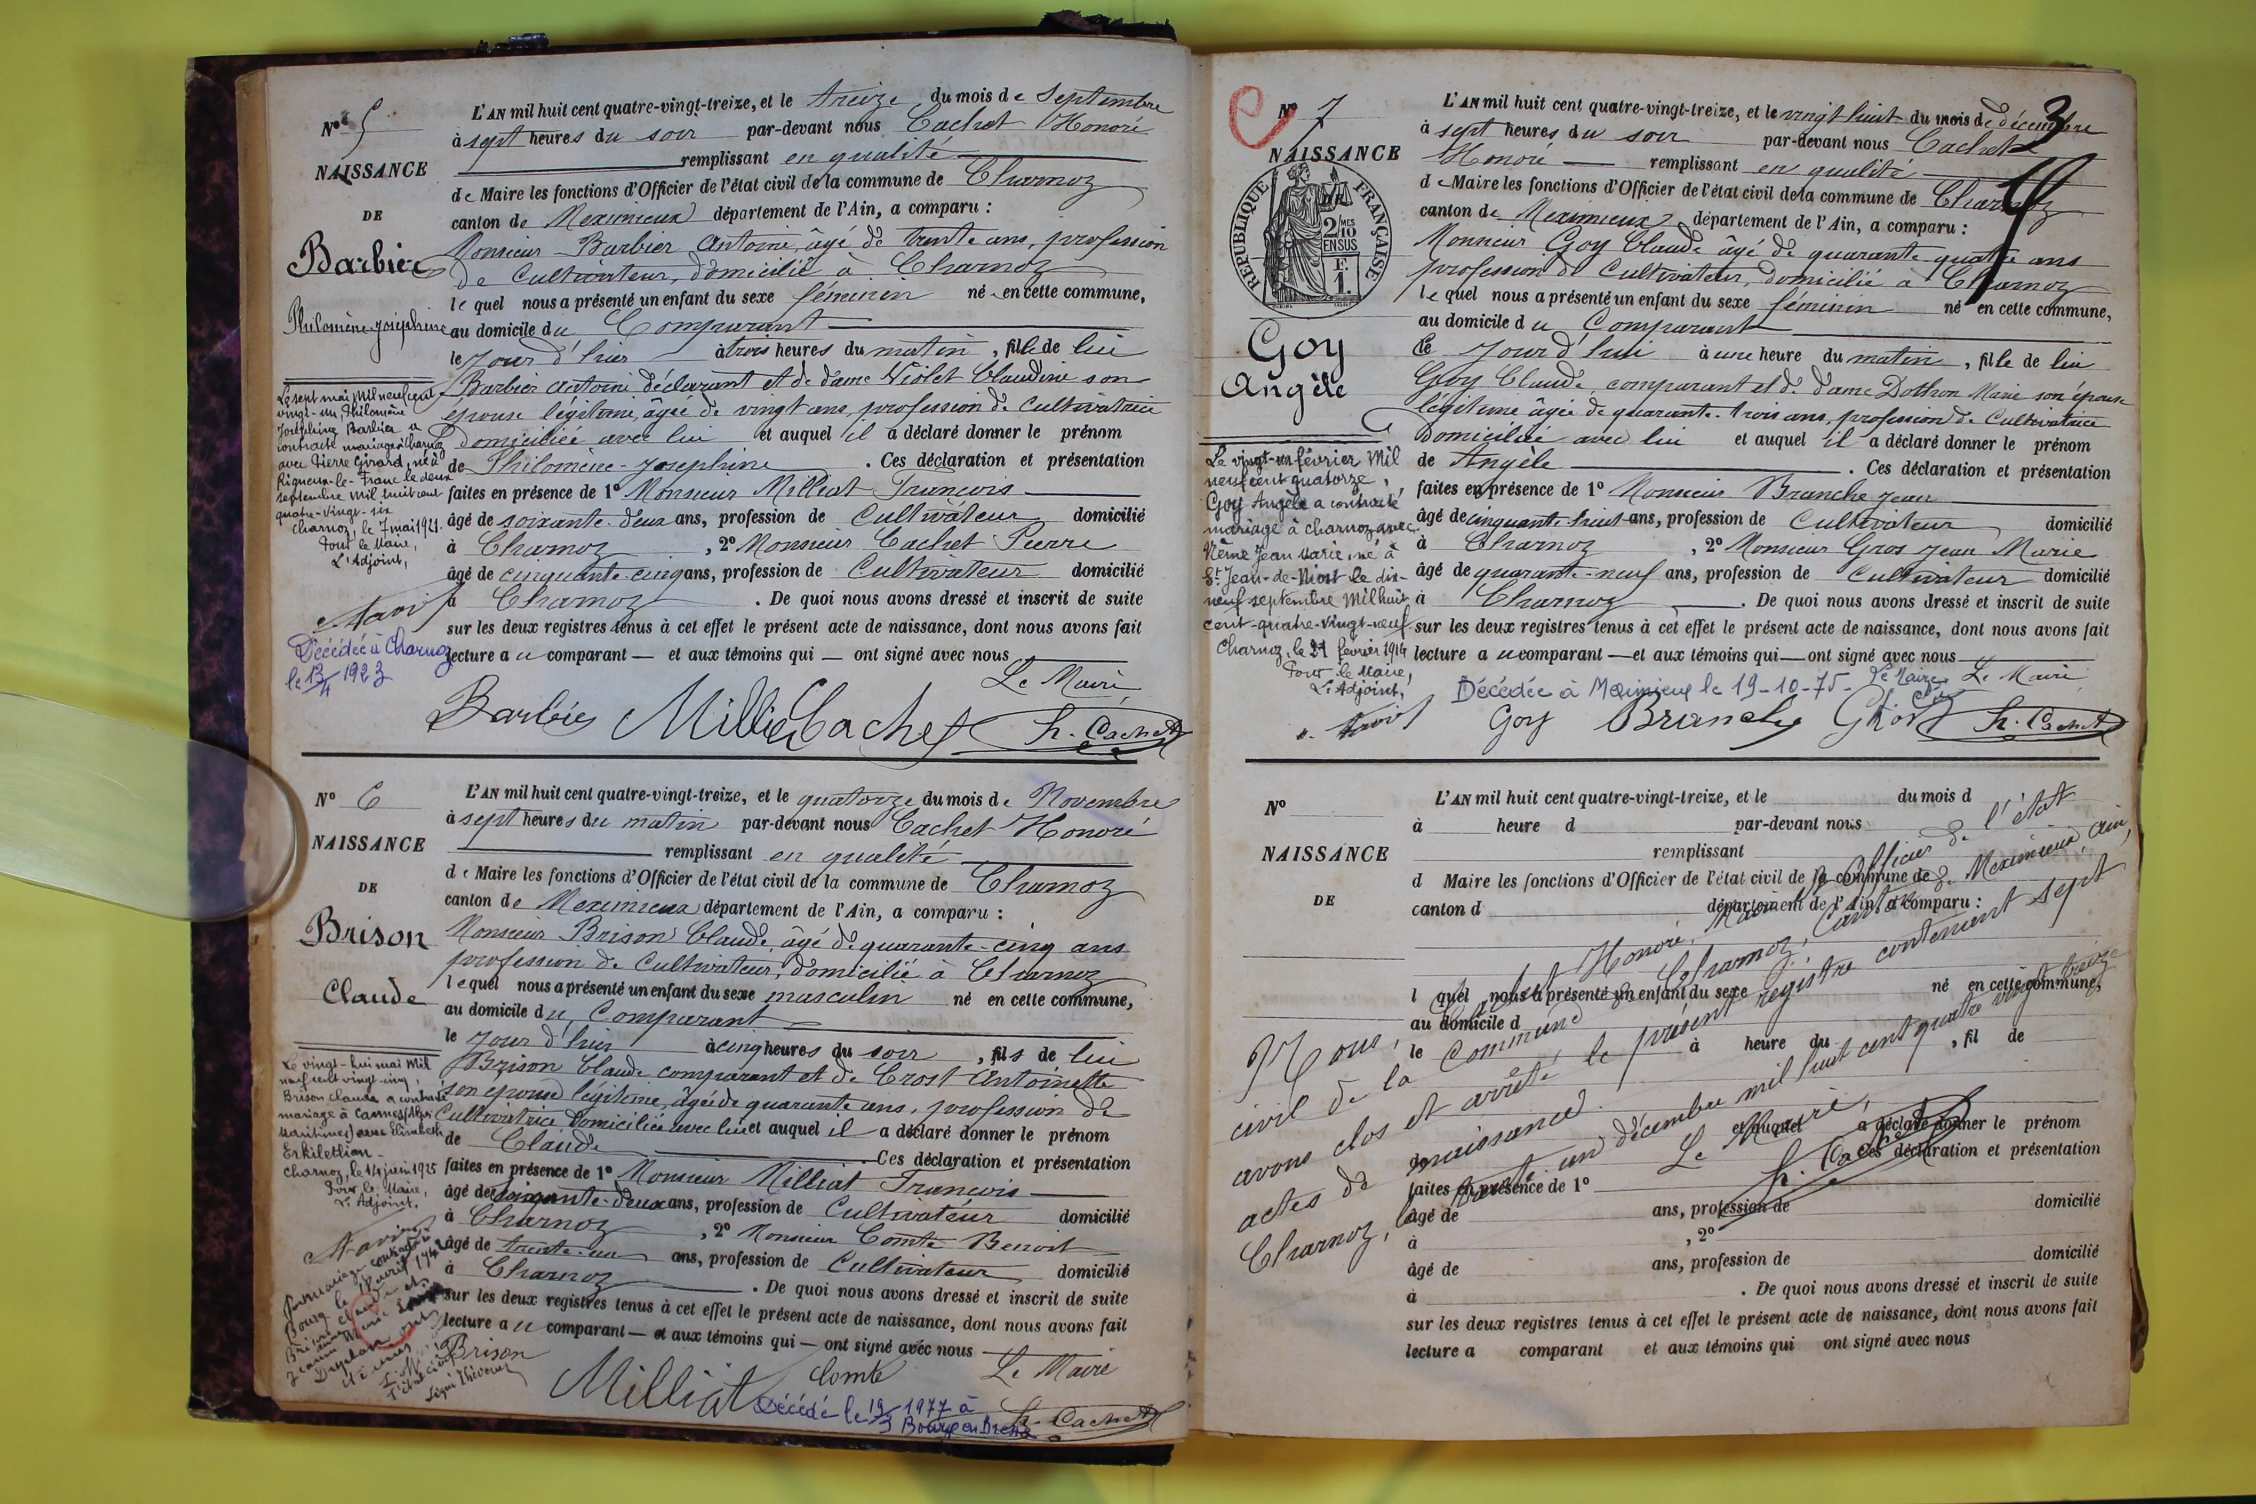 Nº 5
NAISSANCE
DE
Barbier
Philomène-Joséphine
L'AN mil huit cent quatre-vingt-treize, et le treize du mois de Septembre
à sept heures du soir par-devant nous Cachet Honoré
remplissant en qualité
de Maire les fonctions d'Officier de l'état civil de la commune de Charnoz
canton de Meximieux département de l'Ain, a comparu :
Monsieur Barbier Antoine, âgé de trente ans, profession
de Cultivateur, domicilié à Charnoz
le quel nous a présenté un enfant du sexe féminin né en cette commune,
au domicile du Comparant
le jour d'hier à trois heures du matin, fille de lui
Barbier Antoine déclarant et de dame Violet Claudine son
épouse légitime, âgée de vingt ans, profession de Cultivatrice
domiciliée avec lui et auquel il a déclaré donner le prénom
de Philomène-Joséphine. Ces déclaration et présentation
faites en présence de 1º Monsieur Milliat François
âgé de soixante-deux ans, profession de Cultivateur domicilié
à Charnoz, 2º Monsieur Cachet Pierre
âgé de cinquante-cinq ans, profession de Cultivateur domicilié
à Charnoz. De quoi nous avons dressé et inscrit de suite
sur les deux registres tenus à cet effet le présent acte de naissance, dont nous avons fait
lecture au comparant — et aux témoins qui — ont signé avec nous
Le Maire
Barbier Milliat Cachet h. Cachet
Le sept mai Mil neuf cent
vingt-un, Philomène
Joséphine Barbier a
contracté mariage à Charnoz
avec Pierre Girard, né à
Rigneux-le-Franc le deux
septembre Mil huit cent
quatre-vingt-six
Charnoz, le 7 mai 1921.
Pour le Maire,
L'Adjoint,
Décédée à Charnoz
le 13/4 1923
Nº 6
NAISSANCE
DE
Brison
Claude
L'AN mil huit cent quatre-vingt-treize, et le quatorze du mois de Novembre
à sept heures du matin par-devant nous Cachet Honoré
remplissant en qualité
de Maire les fonctions d'Officier de l'état civil de la commune de Charnoz
canton de Meximieux département de l'Ain, a comparu :
Monsieur Brison Claude, âgé de quarante-cinq ans
profession de Cultivateur, domicilié à Charnoz
lequel nous a présenté un enfant du sexe masculin né en cette commune,
au domicile du Comparant
le jour d'hier à cinq heures du soir, fils de lui
Brison Claude comparant et de Crost Antoinette
son épouse légitime, âgée de quarante ans, profession de
Cultivatrice domiciliée avec lui et auquel il a déclaré donner le prénom
de Claude. Ces déclaration et présentation
faites en présence de 1º Monsieur Milliat François
âgé de soixante-deux ans, profession de Cultivateur domicilié
à Charnoz, 2º Monsieur Comte Benoit
âgé de trente-un ans, profession de Cultivateur domicilié
à Charnoz. De quoi nous avons dressé et inscrit de suite
sur les deux registres tenus à cet effet le présent acte de naissance, dont nous avons fait
lecture au comparant — et aux témoins qui — ont signé avec nous
Brison Comte Le Maire
Milliat h. Cachet
Décédé le 19/3 1977 à
Bourg en Bresse
Le vingt-huit mai Mil
neuf cent vingt-cinq,
Brison Claude a contracté
mariage à Cannes (Alpes
Maritimes) avec Elisabeth
Erkiletlian
Charnoz, le 14 juin 1925
Pour le Maire,
L'Adjoint,
Bourg le 18 avril 1942
Nº 7
NAISSANCE
DE
RÉPUBLIQUE FRANÇAISE
2/10 EN SUS
1 F.
Goy
Angèle
3
L'AN mil huit cent quatre-vingt-treize, et le vingt huit du mois de décembre
à sept heures du soir par-devant nous Cachet
Honoré remplissant en qualité
de Maire les fonctions d'Officier de l'état civil de la commune de Charnoz
canton de Meximieux département de l'Ain, a comparu :
Monsieur Goy Claude âgé de quarante-quatre ans
profession de Cultivateur, domicilié à Charnoz
le quel nous a présenté un enfant du sexe féminin né en cette commune,
au domicile du Comparant
le jour d'hui à une heure du matin, fille de lui
Goy Claude comparant et de dame Dothon Marie son épouse
légitime âgée de quarante-trois ans, profession de Cultivatrice
domiciliée avec lui et auquel il a déclaré donner le prénom
de Angèle. Ces déclaration et présentation
faites en présence de 1º Monsieur Branche Jean
âgé de cinquante-huit ans, profession de Cultivateur domicilié
à Charnoz, 2º Monsieur Gros Jean Marie
âgé de quarante-neuf ans, profession de Cultivateur domicilié
à Charnoz. De quoi nous avons dressé et inscrit de suite
sur les deux registres tenus à cet effet le présent acte de naissance, dont nous avons fait
lecture au comparant — et aux témoins qui — ont signé avec nous
Décédée à Meximieux le 19-10-75 - Le Maire Le Maire
Goy Branche h. Cachet
Le vingt-un février Mil
neuf cent quatorze,
Goy Angèle a contracté
mariage à Charnoz avec
Même Jean Marie, né à
St Jean-de-Niost le dix-
neuf septembre Mil huit
cent-quatre-vingt-neuf
Charnoz, le 21 février 1914
Pour le Maire,
L'Adjoint,
Nº
NAISSANCE
DE
L'AN mil huit cent quatre-vingt-treize, et le du mois d
à heure d par-devant nous
remplissant
d Maire les fonctions d'Officier de l'état civil de la commune de
canton d département de l'Ain, a comparu :
l quel nous a présenté un enfant du sexe né en cette commune,
au domicile d
le à heure du, fil de
et auquel a déclaré donner le prénom
de Ces déclaration et présentation
faites en présence de 1º
âgé de ans, profession de domicilié
à, 2º
âgé de ans, profession de domicilié
à. De quoi nous avons dressé et inscrit de suite
sur les deux registres tenus à cet effet le présent acte de naissance, dont nous avons fait
lecture a comparant et aux témoins qui ont signé avec nous
Nous, Cachet Honoré, Maire et Officier de l'état
civil de la Commune de Charnoz, Canton de Meximieux, Ain,
avons clos et arrêté le présent registre contenant sept
actes de naissance.
Charnoz, le trente-un décembre mil huit cent quatre vingt treize
Le Maire,
h. Cachet